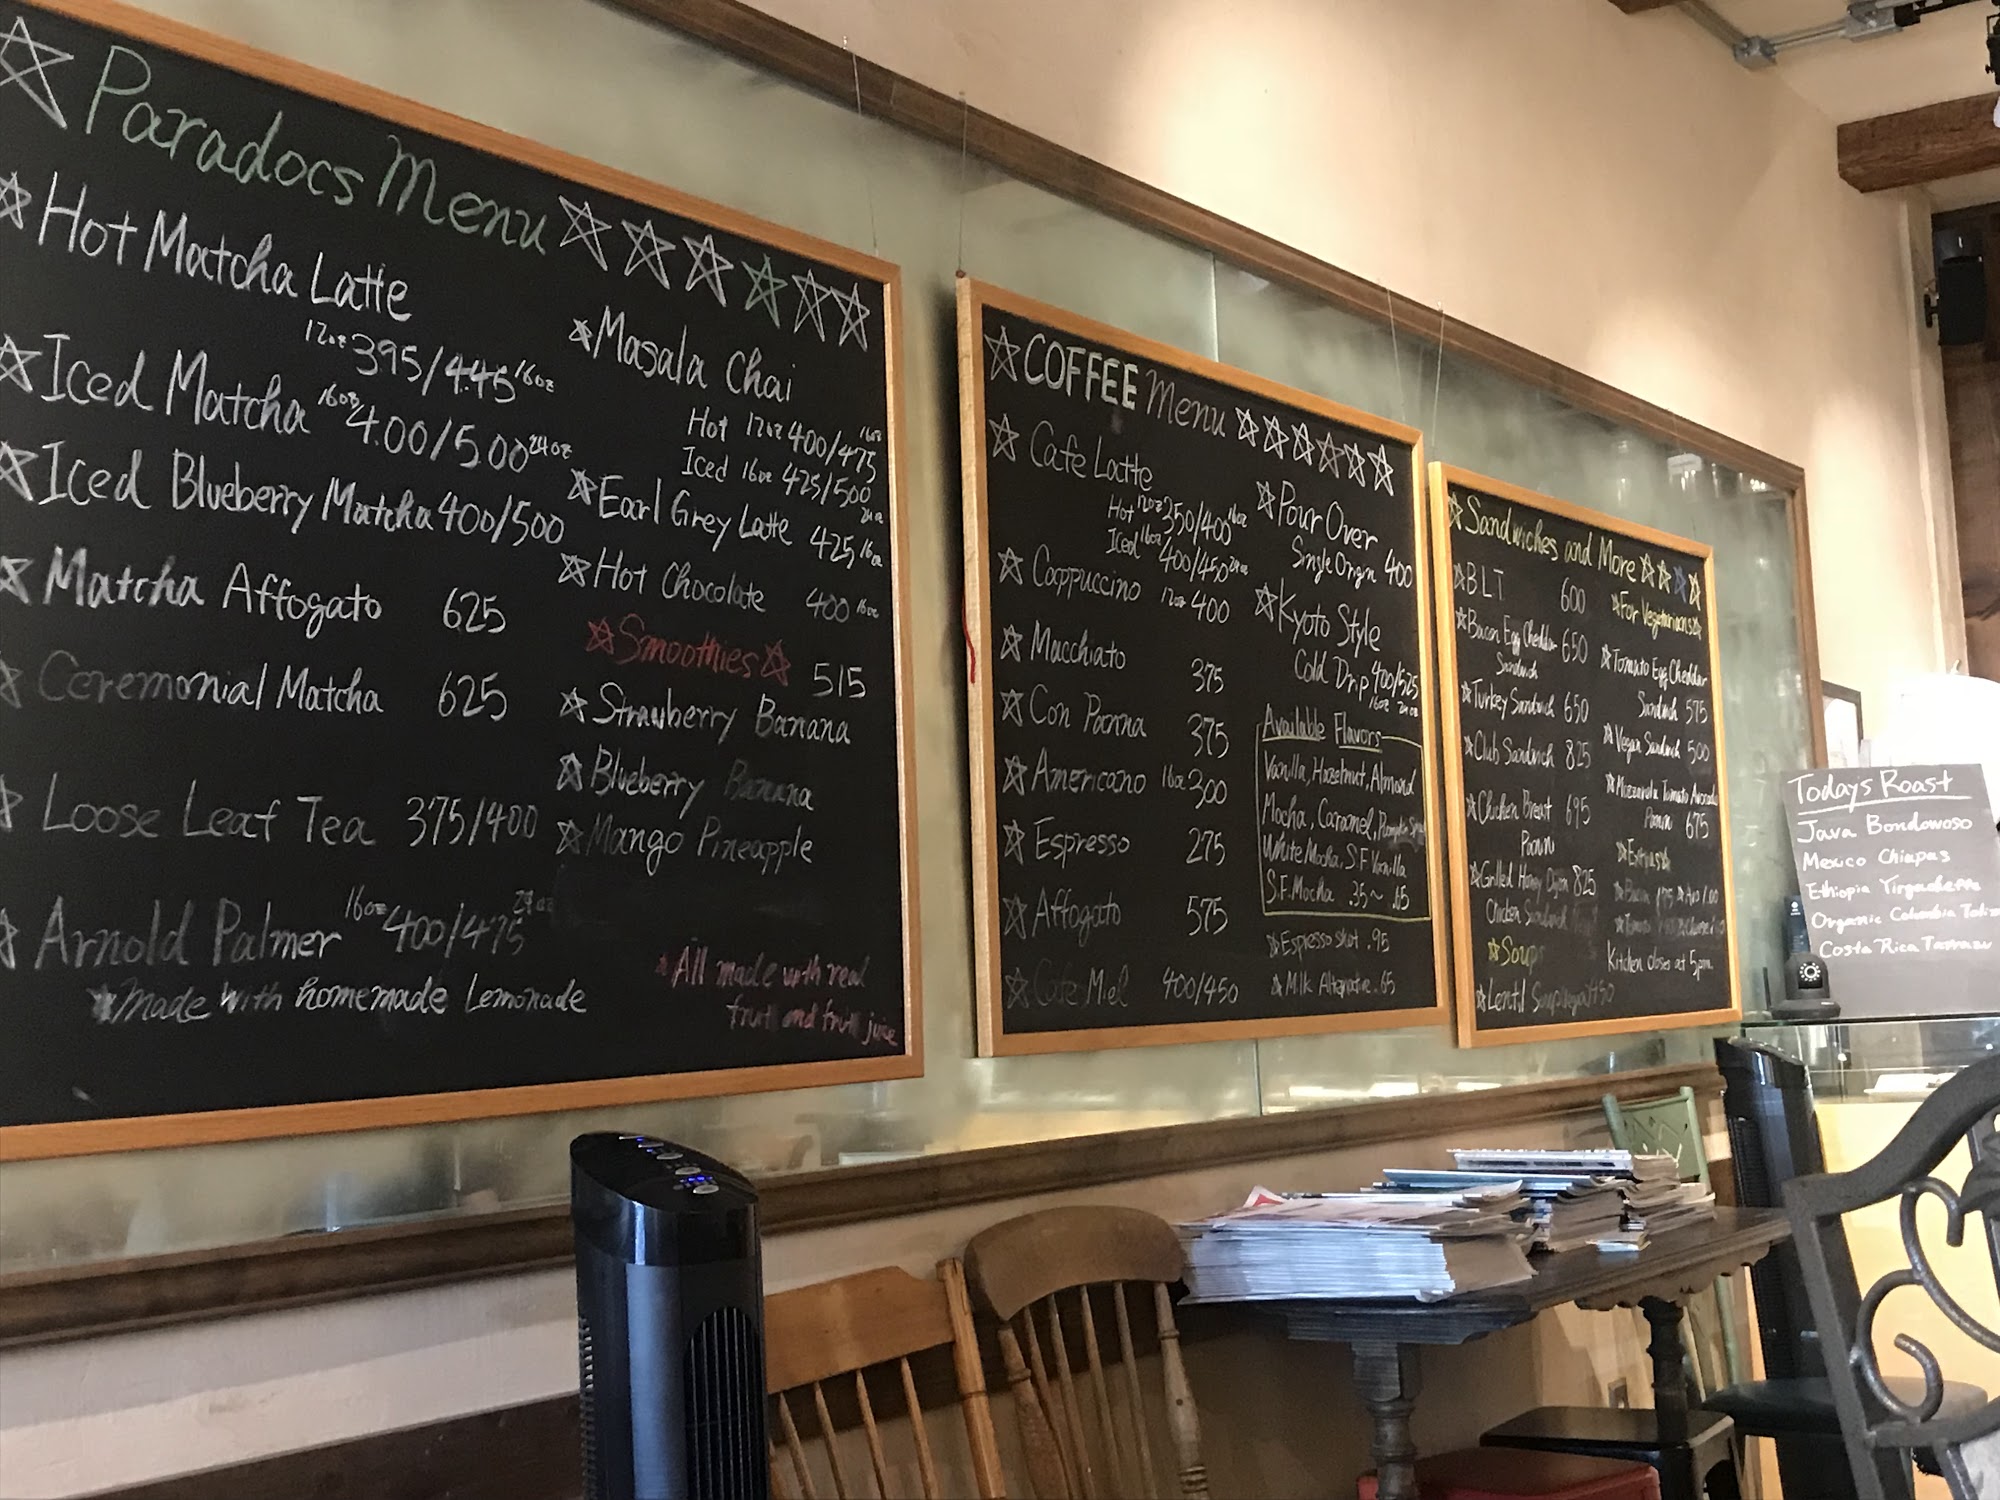 Paradocs Menu
Hot Matcha Latte
12oz 395/445 16oz
Iced Matcha 16oz 4.00/5.00 24oz
Iced Blueberry Matcha 400/500
Matcha Affogato 625
Ceremonial Matcha 625
Loose Leaf Tea 375/400
Arnold Palmer 16oz 400/475 24oz
Made with homemade Lemonade
Masala Chai
Hot 12oz 400/475 16oz
Iced 16oz 425/500 24oz
Earl Grey Latte 425 16oz
Hot Chocolate 400 16oz
Smoothies 515
Strawberry Banana
Blueberry Banana
Mango Pineapple
All made with real
fruit and fruit juice
COFFEE Menu
Cafe Latte
Hot 12oz 350/400 16oz
Iced 16oz 400/450 24oz
Cappuccino 12oz 400
Macchiato 375
Con Panna 375
Americano 16oz 300
Espresso 275
Affogato 575
Cafe Miel 400/450
Pour Over
Single Origin 400
Kyoto Style
Cold Drip 400/525
16oz 24oz
Available Flavors
Vanilla, Hazelnut, Almond
Mocha, Caramel, Pumpkin
White Mocha, S.F. Vanilla
S.F. Mocha .35~.65
Espresso shot .95
Milk Alternative .65
Sandwiches and More
BLT 600
Bacon Egg Cheddar 650
Sandwich
Turkey Sandwich 650
Club Sandwich 825
Chicken Breast 695
Panini
Grilled Honey Dijon 825
Chicken Sandwich
Soups
Lentil Soup
For Vegetarians
Tomato Egg Cheddar
Sandwich 575
Vegan Sandwich 500
Mozzarella Tomato Avocado
Panini 675
Extras
Bacon
Tomato
Kitchen closes at 5pm.
Todays Roast
Java Bondowoso
Mexico Chiapas
Ethiopia Yirgacheffe
Organic Colombia
Costa Rica Tarrazu